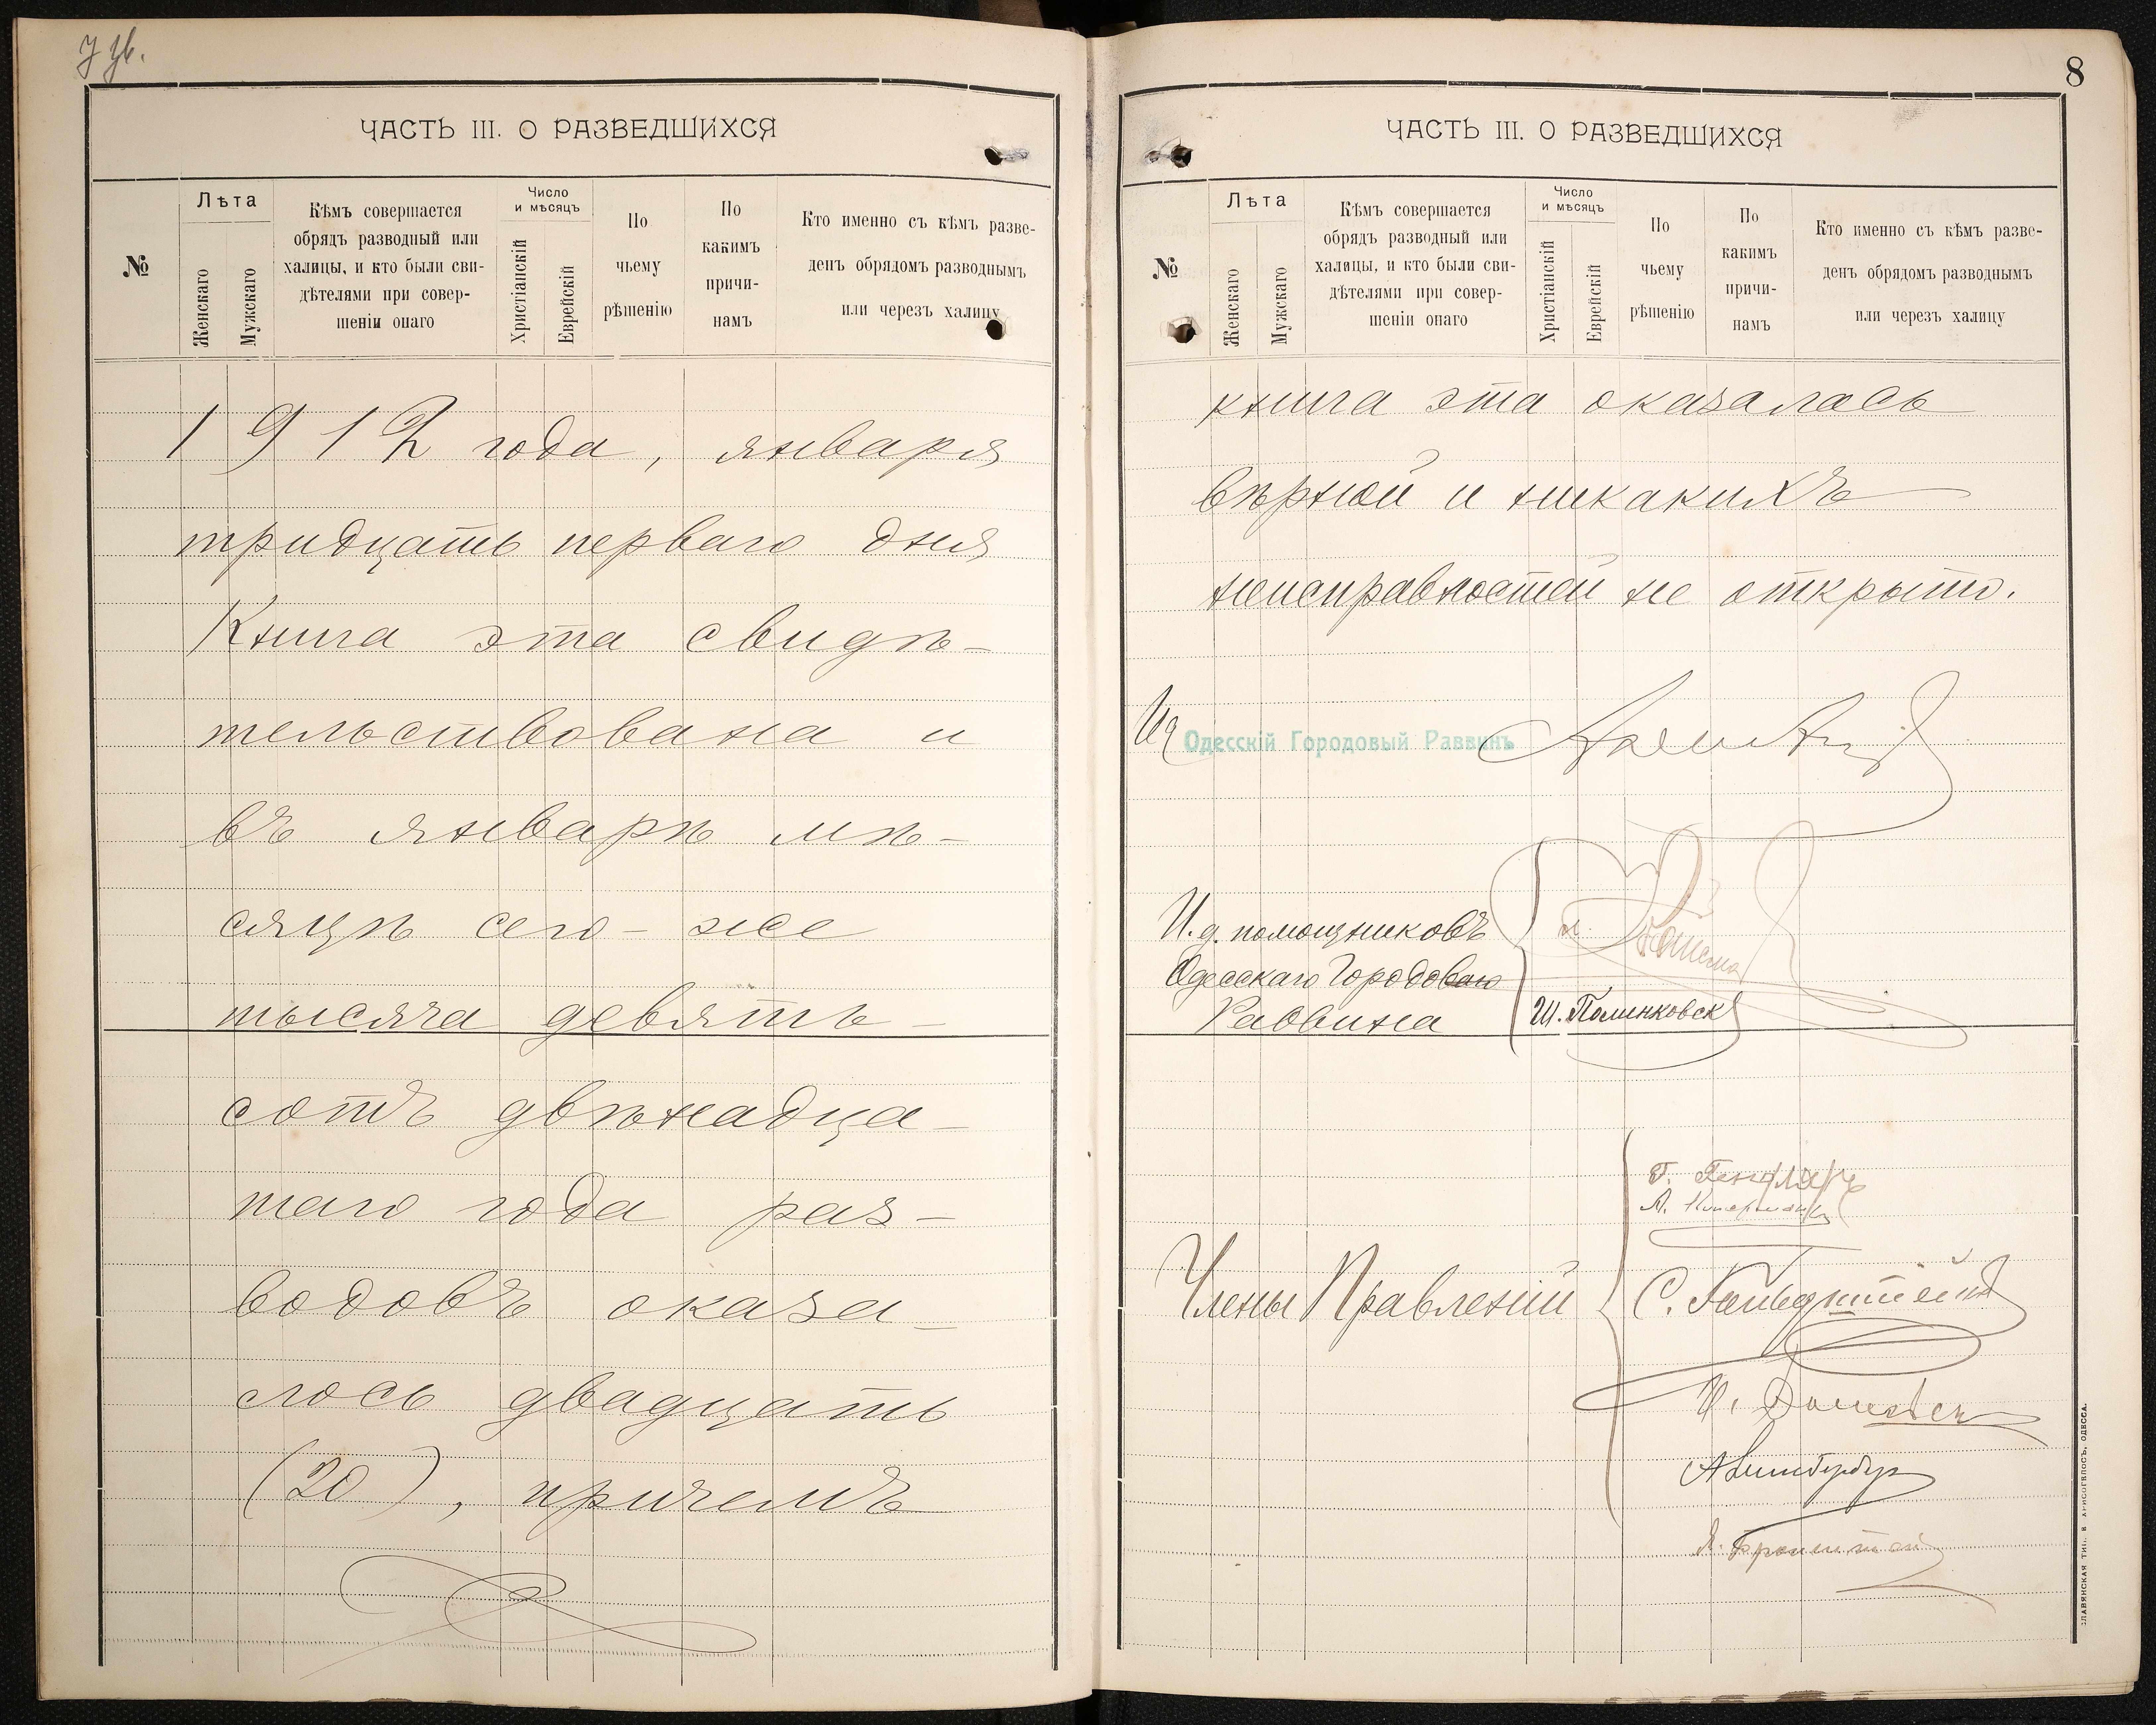 ЧАСТЬ III. О РАЗВЕДШИХСЯ
№
Лѣта
Женскаго
Мужскаго
Кѣмъ совершается
обрядъ разводный или
халицы, и кто были сви-
дѣтелями при совер-
шеніи онаго
Число
и мѣсяцъ
Христіанскій
Еврейскій
По
чьему
рѣшенію
По
какимъ
причи-
намъ
Кто именно съ кѣмъ разве-
денъ обрядомъ разводнымъ
или черезъ халицу
1912 года, января
тридцать перваго дня
Книга эта свидѣ-
тельствована и
въ январѣ мѣ-
сяцѣ сего-же
тысяча девять-
сотъ двѣнадца-
таго года раз-
водовъ оказа-
лось двадцать
(20), причемъ
8
ЧАСТЬ III. О РАЗВЕДШИХСЯ
№
Лѣта
Женскаго
Мужскаго
Кѣмъ совершается
обрядъ разводный или
халицы, и кто были сви-
дѣтелями при совер-
шеніи онаго
Число
и мѣсяцъ
Христіанскій
Еврейскій
По
чьему
рѣшенію
По
какимъ
причи-
намъ
Кто именно съ кѣмъ разве-
денъ обрядомъ разводнымъ
или черезъ халицу
книга эта оказалась
вѣрной и никакихъ
неисправностей не открыто.
Одесскій Городовый Раввинъ
И.д. помощниковъ
Одесскаго Городоваго
Раввина
Ш. Полинковск
Члены Правленій
С. Гольденштейнъ
СЛАВЯНСКАЯ ТИП. Н ХРИСОГЕЛОСЪ, ОДЕССА.